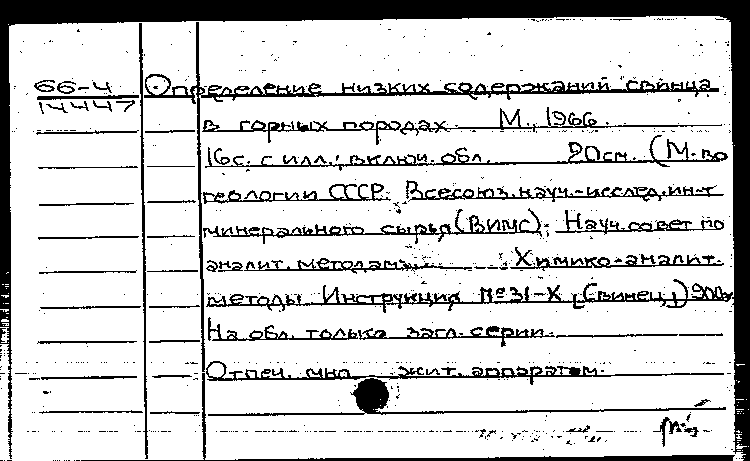 66-4 Определение низких содержаний свинца
14447
в горных породах. М., 1966.
16с. с илл.; включ. обл. 20см. (М-во
геологии СССР. Всесоюз. науч.-исслед. ин-т
минерального сырья (ВИМС). Науч. совет по
аналит. методам. Химико-аналит.
методы. Инструкция № 31-Х [Свинец])
На обл. только загл. серии.
Отпеч. мно жит. аппаратом.